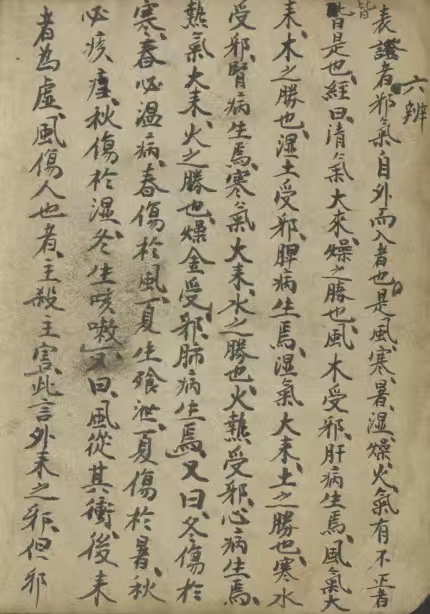 六辨
表證者邪氣自外而入者也是風寒暑濕燥火氣有不正者
皆
皆是也經曰清氣大來燥之勝也風木受邪肝病生焉風氣大
耒木之勝也濕土受邪脾病生焉濕氣大耒土之勝也寒水
受邪腎病生焉寒氣大耒水之勝也火熱受邪心病生焉
熱氣大耒火之勝也燥金受邪肺病生焉又曰冬傷於
寒春必温病春傷於風夏生飱泄夏傷於暑秋
必痎瘧秋傷於濕冬生咳嗽又曰風從其衝後耒
者為虛風傷人也者主殺主害此言外耒之邪但邪